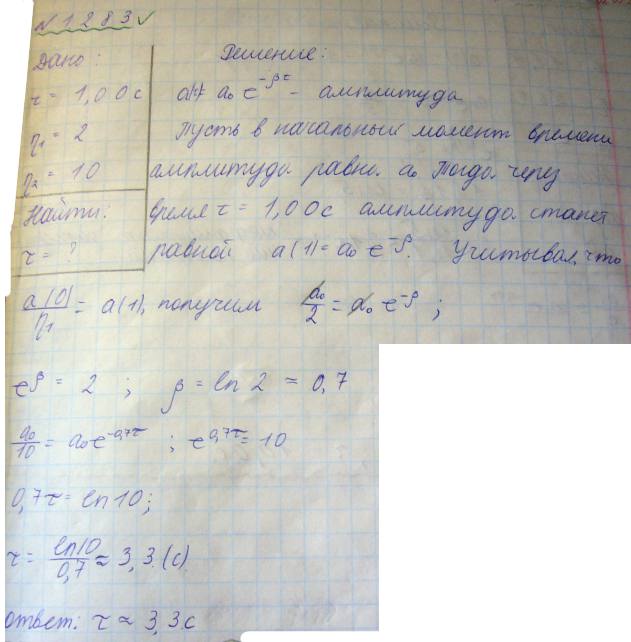 N 1283 ✓
Дано: Решение:
τ = 1,00 с a(t) = a₀ e^{-βτ} - амплитуда
η₁ = 2 Пусть в начальный момент времени
η₂ = 10 амплитуда равна a₀ Тогда через
Найти: время τ = 1,00 с амплитуда станет
τ = ? равной a(1) = a₀ e^{-β}. Учитывая, что
a(0)/η₁ = a(1), получим a₀/2 = a₀ e^{-β};
e^β = 2; β = ln 2 ≈ 0,7
a₀/10 = a₀ e^{-0,7τ}; e^{0,7τ} = 10
0,7τ = ln 10;
τ = ln10/0,7 ≈ 3,3 (с)
ответ: τ ≈ 3,3 с